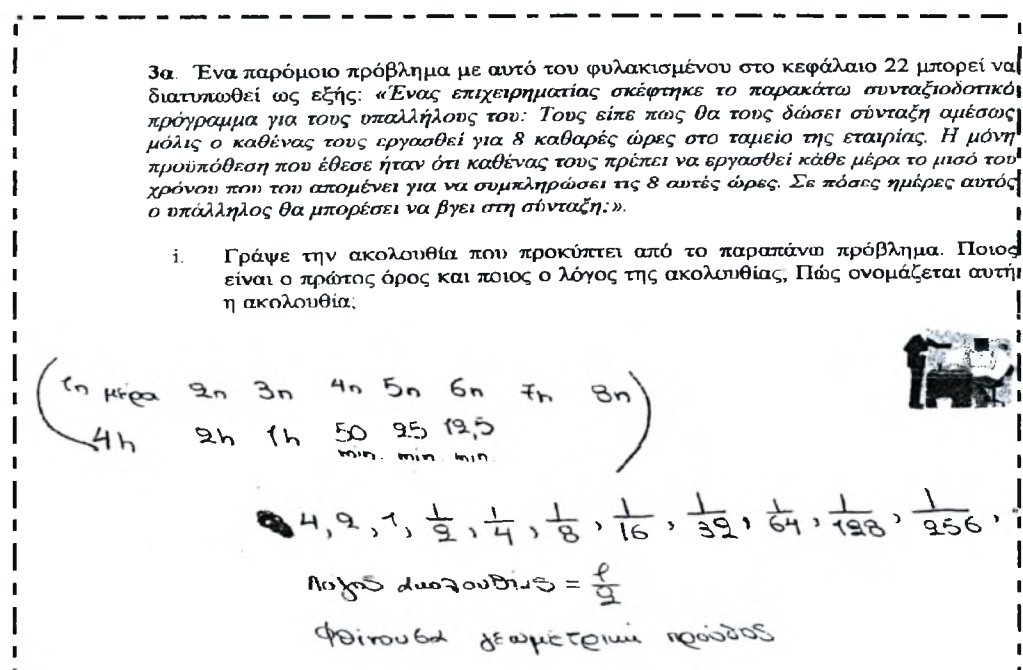 3α. Ένα παρόμοιο πρόβλημα με αυτό του φυλακισμένου στο κεφάλαιο 22 μπορεί να
διατυπωθεί ως εξής: «Ένας επιχειρηματίας σκέφτηκε το παρακάτω συνταξιοδοτικό
πρόγραμμα για τους υπαλλήλους του: Τους είπε πως θα τους δώσει σύνταξη αμέσως
μόλις ο καθένας τους εργασθεί για 8 καθαρές ώρες στο ταμείο της εταιρίας. Η μόνη
προϋπόθεση που έθεσε ήταν ότι καθένας τους πρέπει να εργασθεί κάθε μέρα το μισό του
χρόνου που του απομένει για να συμπληρώσει τις 8 αυτές ώρες. Σε πόσες ημέρες αυτός
ο υπάλληλος θα μπορέσει να βγει στη σύνταξη;».
i. Γράψε την ακολουθία που προκύπτει από το παραπάνω πρόβλημα. Ποιος
είναι ο πρώτος όρος και ποιος ο λόγος της ακολουθίας; Πώς ονομάζεται αυτή
η ακολουθία;
(1η μέρα 2η 3η 4η 5η 6η 7η 8η)
4h 2h 1h 50 25 12,5
min. min. min.
4, 2, 1, 1/2, 1/4, 1/8, 1/16, 1/32, 1/64, 1/128, 1/256,
Λόγος ακολουθίας = 1/2
Φθίνουσα γεωμετρική πρόοδος